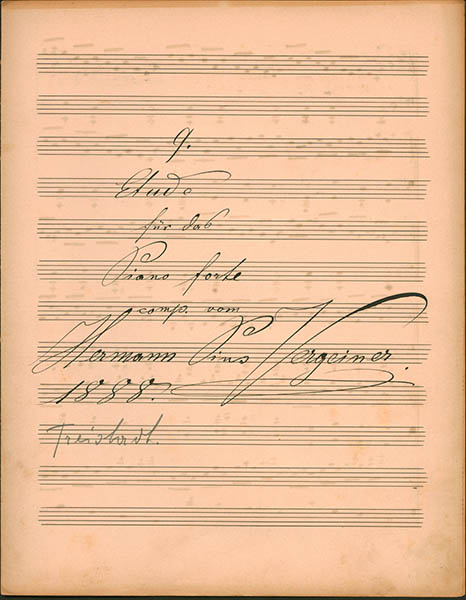 9.
Etude
für das
Piano forte
comp. vom
Hermann Pius Vergeiner.
1888.
Freistadt.